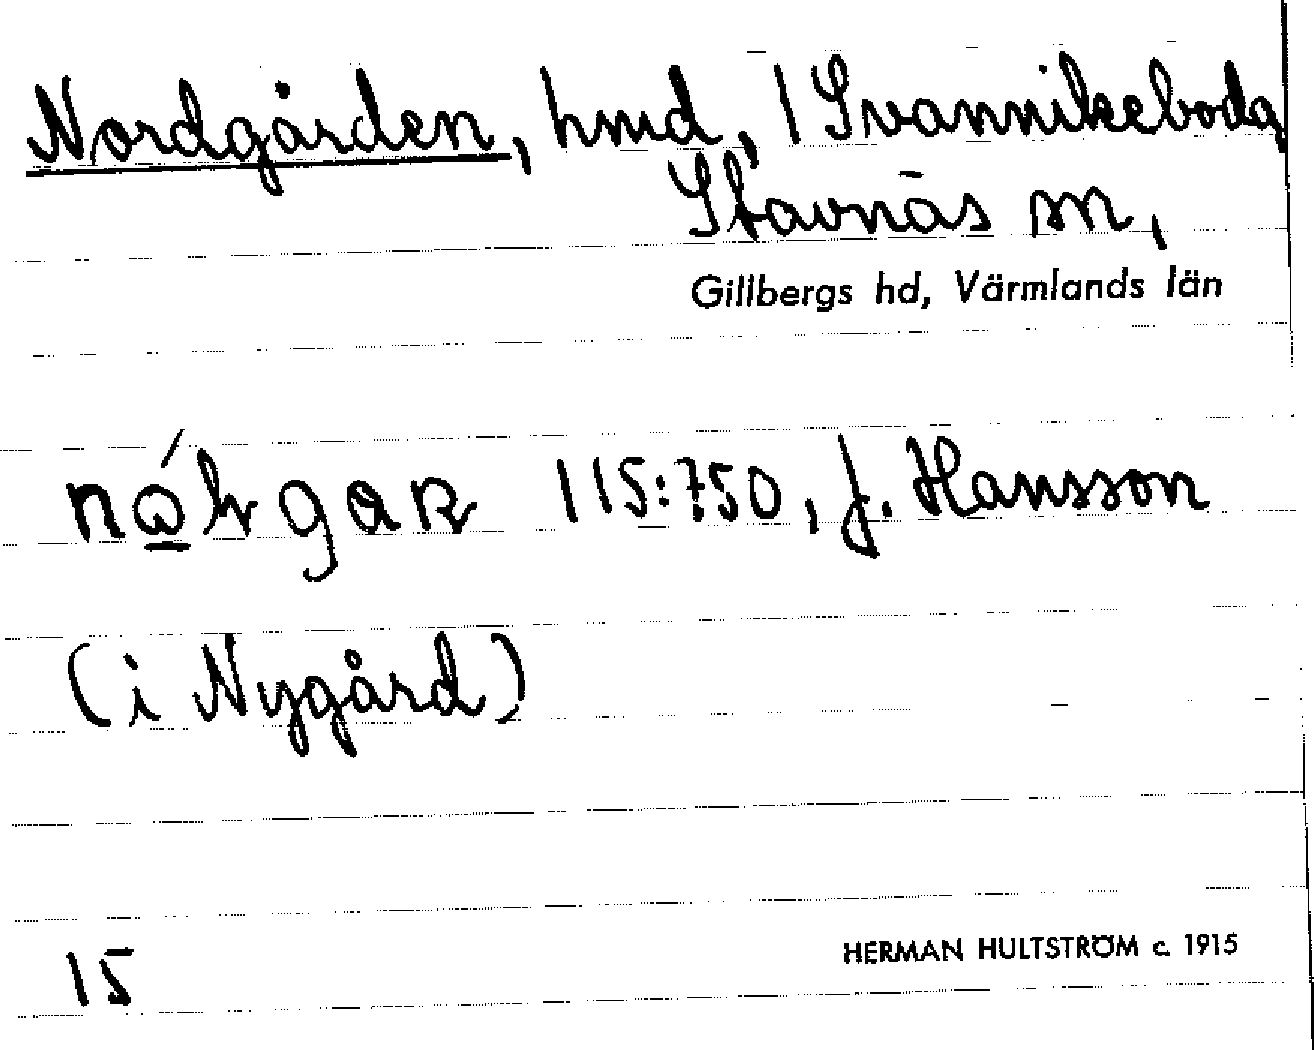 Nordgården, hmd, 1 Svannikeboda
Stavnäs sn,
Gillbergs hd, Värmlands län
115:750, J. Hansson
(i Nygård)
15
HERMAN HULTSTRÖM c. 1915